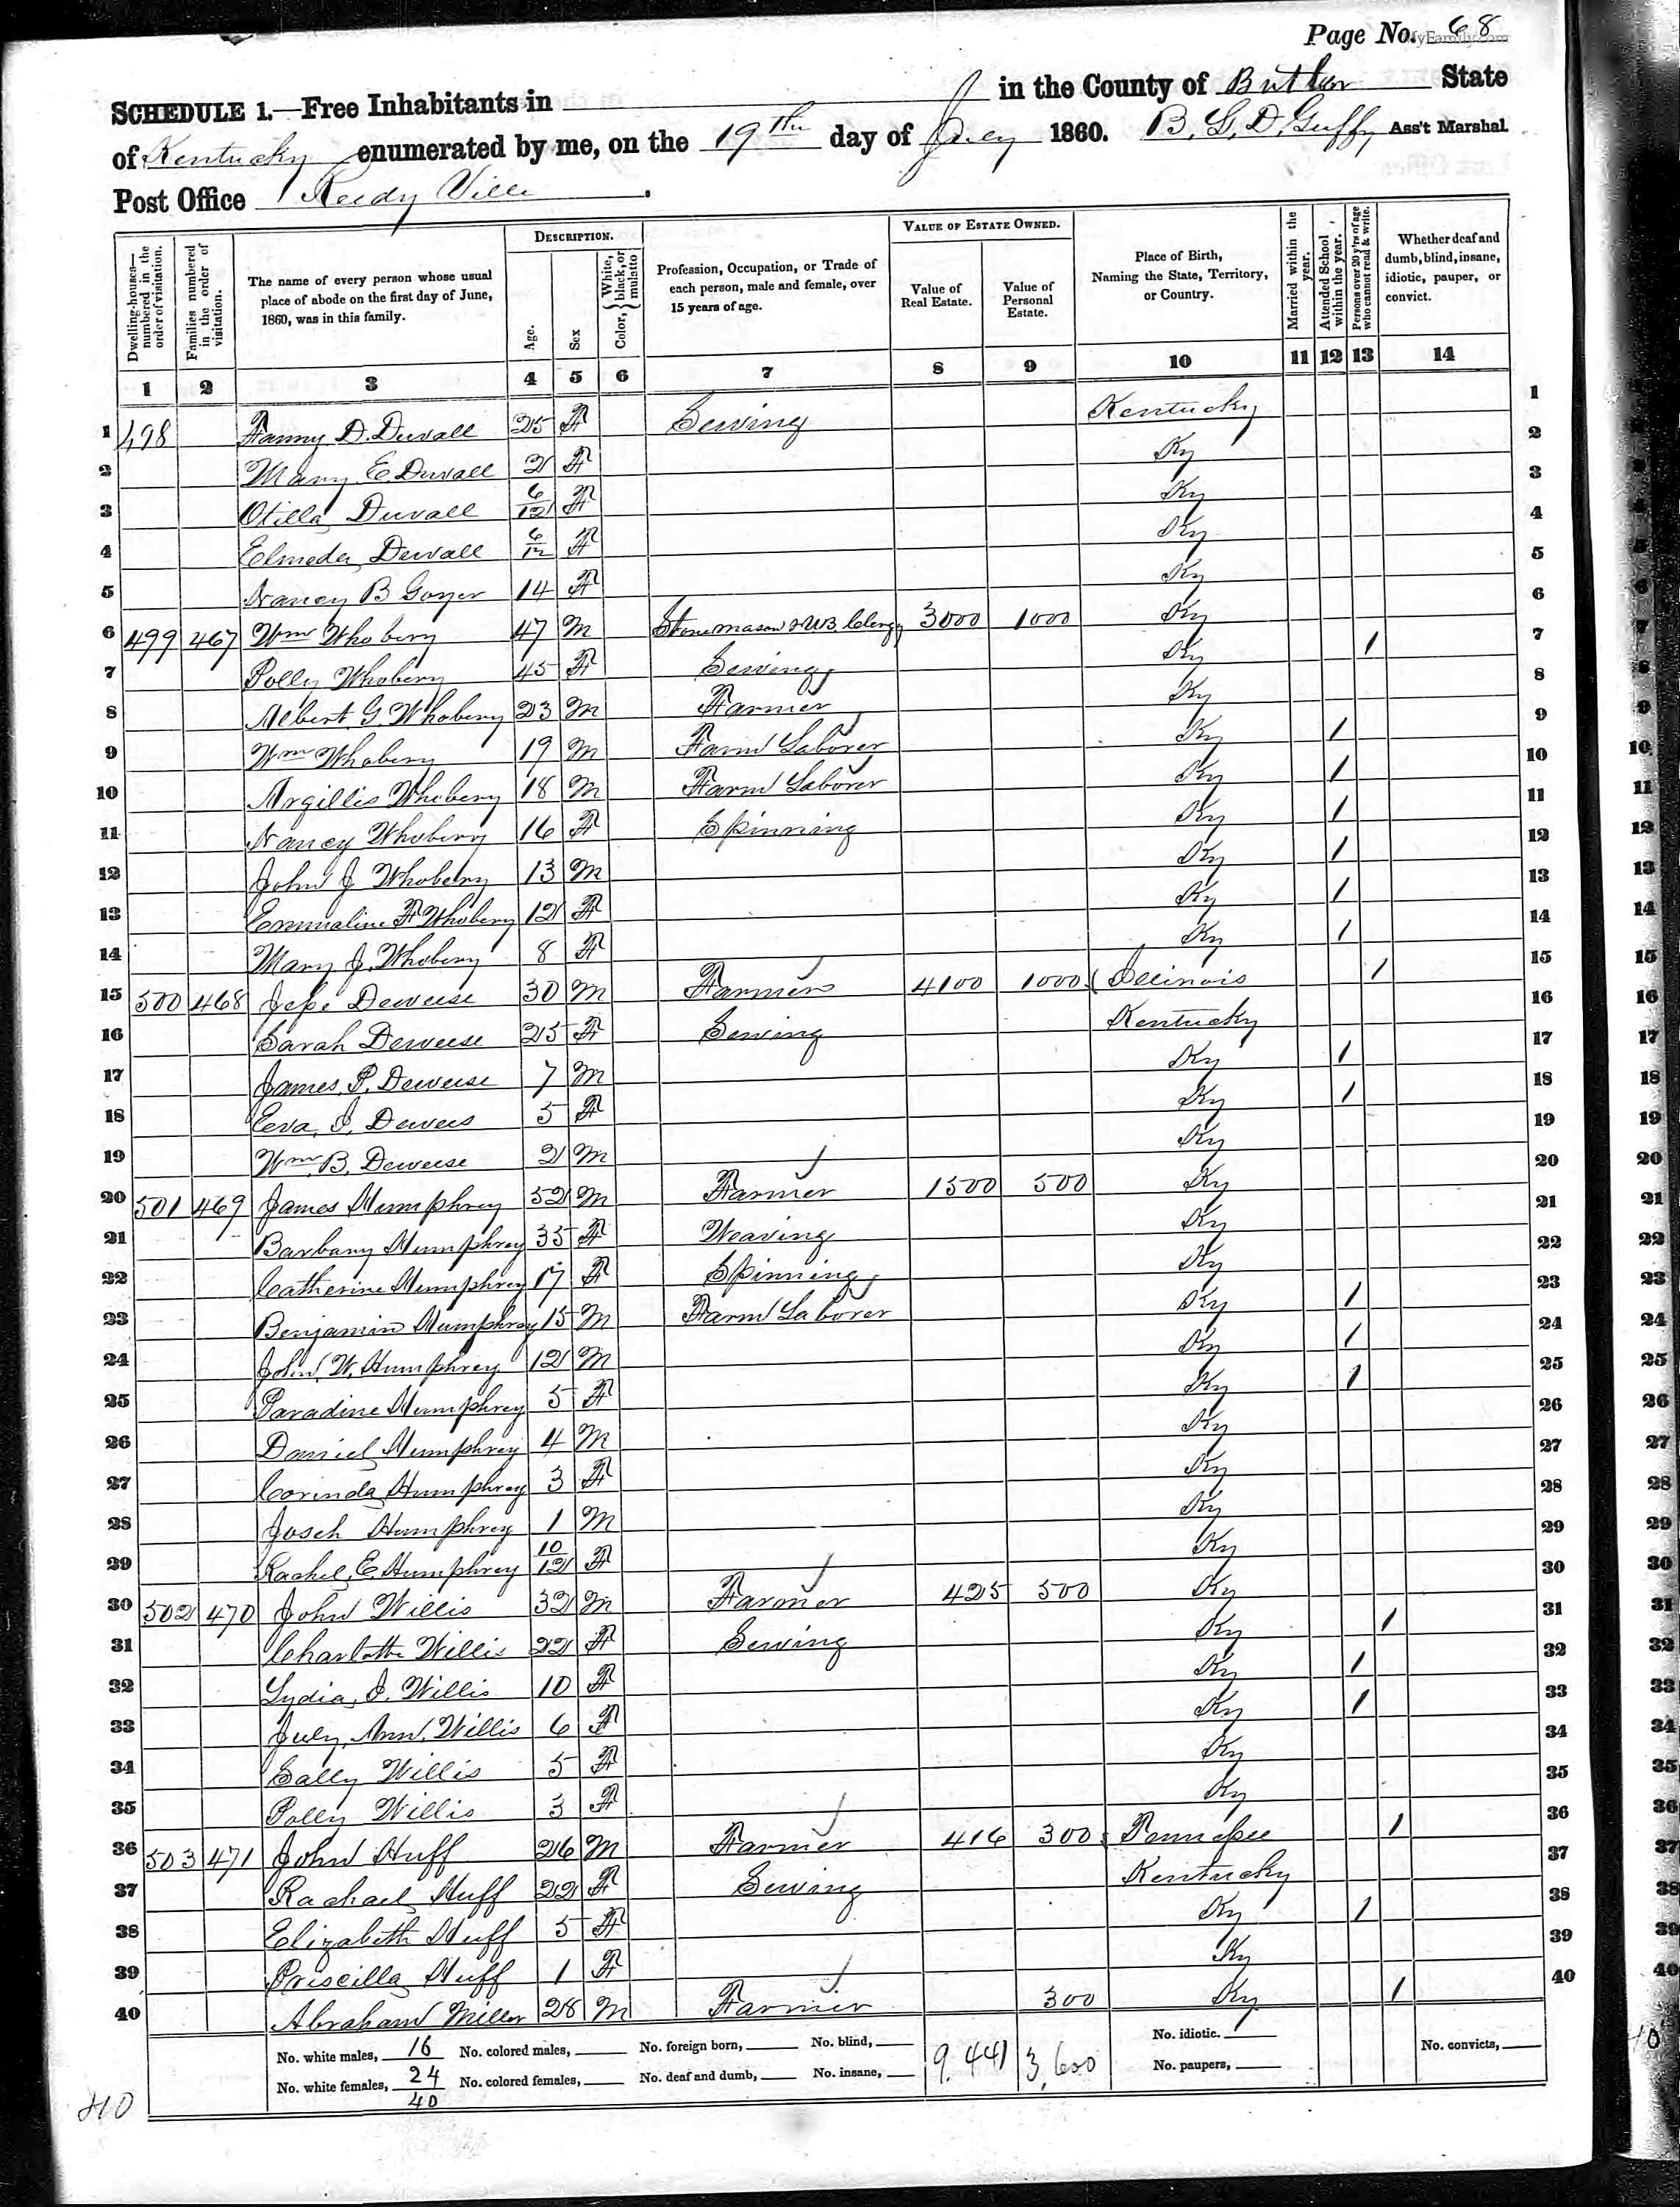 Page No. 68
SCHEDULE 1.—Free Inhabitants in in the County of Butler State
of Kentucky enumerated by me, on the 19th day of July 1860. B. L. D. Guffy Ass't Marshal
Post Office Reedy Ville.
Dwelling-houses—numbered in the order of visitation.
Families numbered in the order of visitation.
The name of every person whose usual place of abode on the first day of June, 1860, was in this family.
DESCRIPTION.
Age.
Sex
Color, { White, black, or mulatto
Profession, Occupation, or Trade of each person, male and female, over 15 years of age.
VALUE OF ESTATE OWNED.
Value of Real Estate.
Value of Personal Estate.
Place of Birth, Naming the State, Territory, or Country.
Married within the year.
Attended School within the year.
Persons over 20 y'rs of age who cannot read & write.
Whether deaf and dumb, blind, insane, idiotic, pauper, or convict.
1 2 3 4 5 6 7 8 9 10 11 12 13 14
1 498 Fanny D. Duvall 25 F Sewing Kentucky 1
2 Mary E Duvall 2 F Ky 2
3 Otilla Duvall 6/12 F Ky 3
4 Elmeda Duvall 6/12 F Ky 4
5 Nancy B Goyer 14 F Ky 5
6 499 467 Wm Whobery 47 M Stone mason & U.B. Clergy 3000 1000 Ky 6
7 Polly Whobery 45 F Sewing Ky / 7
8 Albert G. Whobery 23 M Farmer Ky 8
9 Wm Whobery 19 M Farm Laborer Ky / 9
10 Argillis Whobery 18 M Farm Laborer Ky / 10
11 Nancy Whobery 16 F Spinning Ky / 11
12 John J Whobery 13 M Ky / 12
13 Emmaline F Whobery 12 F Ky / 13
14 Mary J. Whobery 8 F Ky / 14
15 500 468 Jesse Deweese 30 M Farmer 4100 1000 Illinois / 15
16 Sarah Deweese 25 F Sewing Kentucky 16
17 James P. Deweese 7 M Ky / 17
18 Eva, J. Dewees 5 F Ky / 18
19 Wm. B. Deweese 2 M Ky 19
20 501 469 James Humphrey 52 M Farmer 1500 500 Ky 20
21 Barbany Humphrey 35 F Weaving Ky 21
22 Catherine Humphrey 17 F Spinning Ky 22
23 Benjamin Humphrey 15 M Farm Laborer Ky / 23
24 John, W. Humphrey 12 M Ky / 24
25 Paradine Humphrey 5 F Ky / 25
26 Daniel Humphrey 4 M Ky 26
27 Corinda Humphrey 3 F Ky 27
28 Joseh Humphrey 1 M Ky 28
29 Rachel, E. Humphrey 10/12 F Ky 29
30 502 470 John Willis 32 M Farmer 425 500 Ky 30
31 Charlotte Willis 22 F Sewing Ky / 31
32 Lydia, J. Willis 10 F Ky / 32
33 July, Ann, Willis 6 F Ky / 33
34 Sally Willis 5 F Ky 34
35 Polly Willis 3 F Ky 35
36 503 471 John Huff 26 M Farmer 416 300 Tennessee / 36
37 Rachael Huff 22 F Sewing Kentucky 37
38 Elizabeth Huff 5 F Ky / 38
39 Priscilla Huff 1 F Ky 39
40 Abraham Miller 28 M Farmer 300 Ky / 40
No. white males, 16 No. colored males, No. foreign born, No. blind, 9,441 3,600 No. idiotic. No. convicts,
No. white females, 24 No. colored females, No. deaf and dumb, No. insane, No. paupers,
40
40